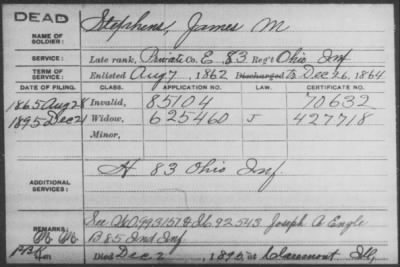 DEAD
NAME OF SOLDIER: Stephens, James M
SERVICE: Late rank, Private Co. E 83 Reg't Ohio Inf
TERM OF SERVICE: Enlisted Aug 7, 1862 Discharged Dec 26, 1864
DATE OF FILING. CLASS. APPLICATION NO. LAW. CERTIFICATE NO.
1865 Aug 28 Invalid, 85104 70632
1895 Dec 21 Widow, 625460 J 427718
Minor,
ADDITIONAL SERVICES: H 83 Ohio Inf.
See 993157 & 92543 Joseph A Engle
REMARKS: B 85 Ind Inf.
Died Dec 2, 1895, at Claremont Ill,